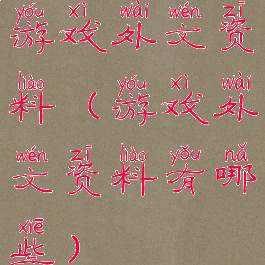 yóu xì wài wén zī
游戏外文资
liào yóu xì wài
料（游戏外
wén zī liào yǒu nǎ
文资料有哪
xiē
些）